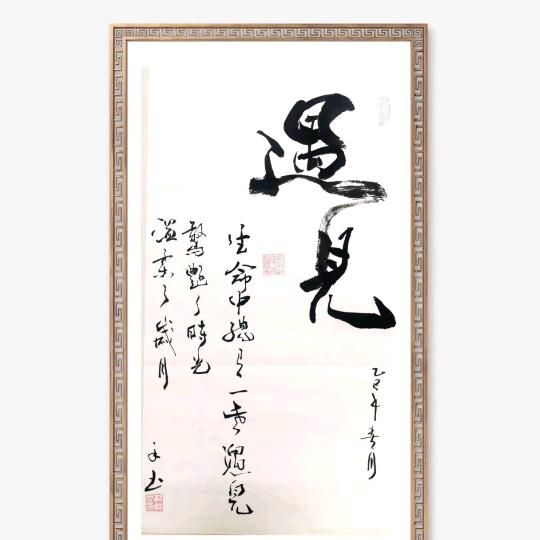 遇見
乙巳年春月
生命中總有一些遇見
驚艷了時光
溫柔了歲月